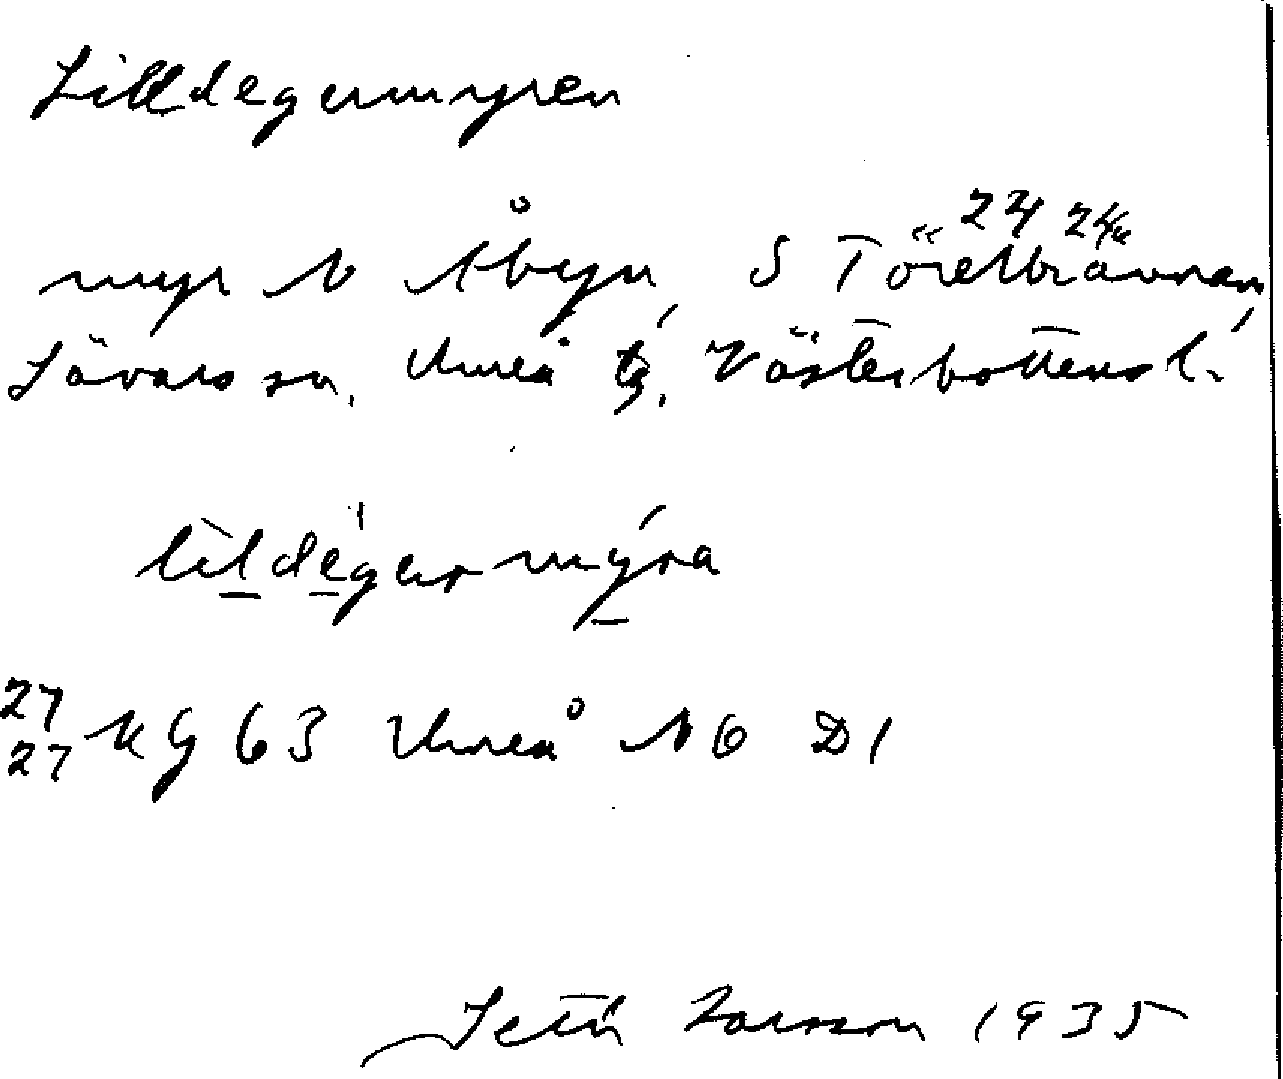 Lilldegermyren
24 24
myr N Åbyn, S Törelbrännan,
Sävars sn, Umeå tg, Västerbottens l.
lildégermýra
27 27 KG 63 Umeå NO D1
Seth Larsson 1935